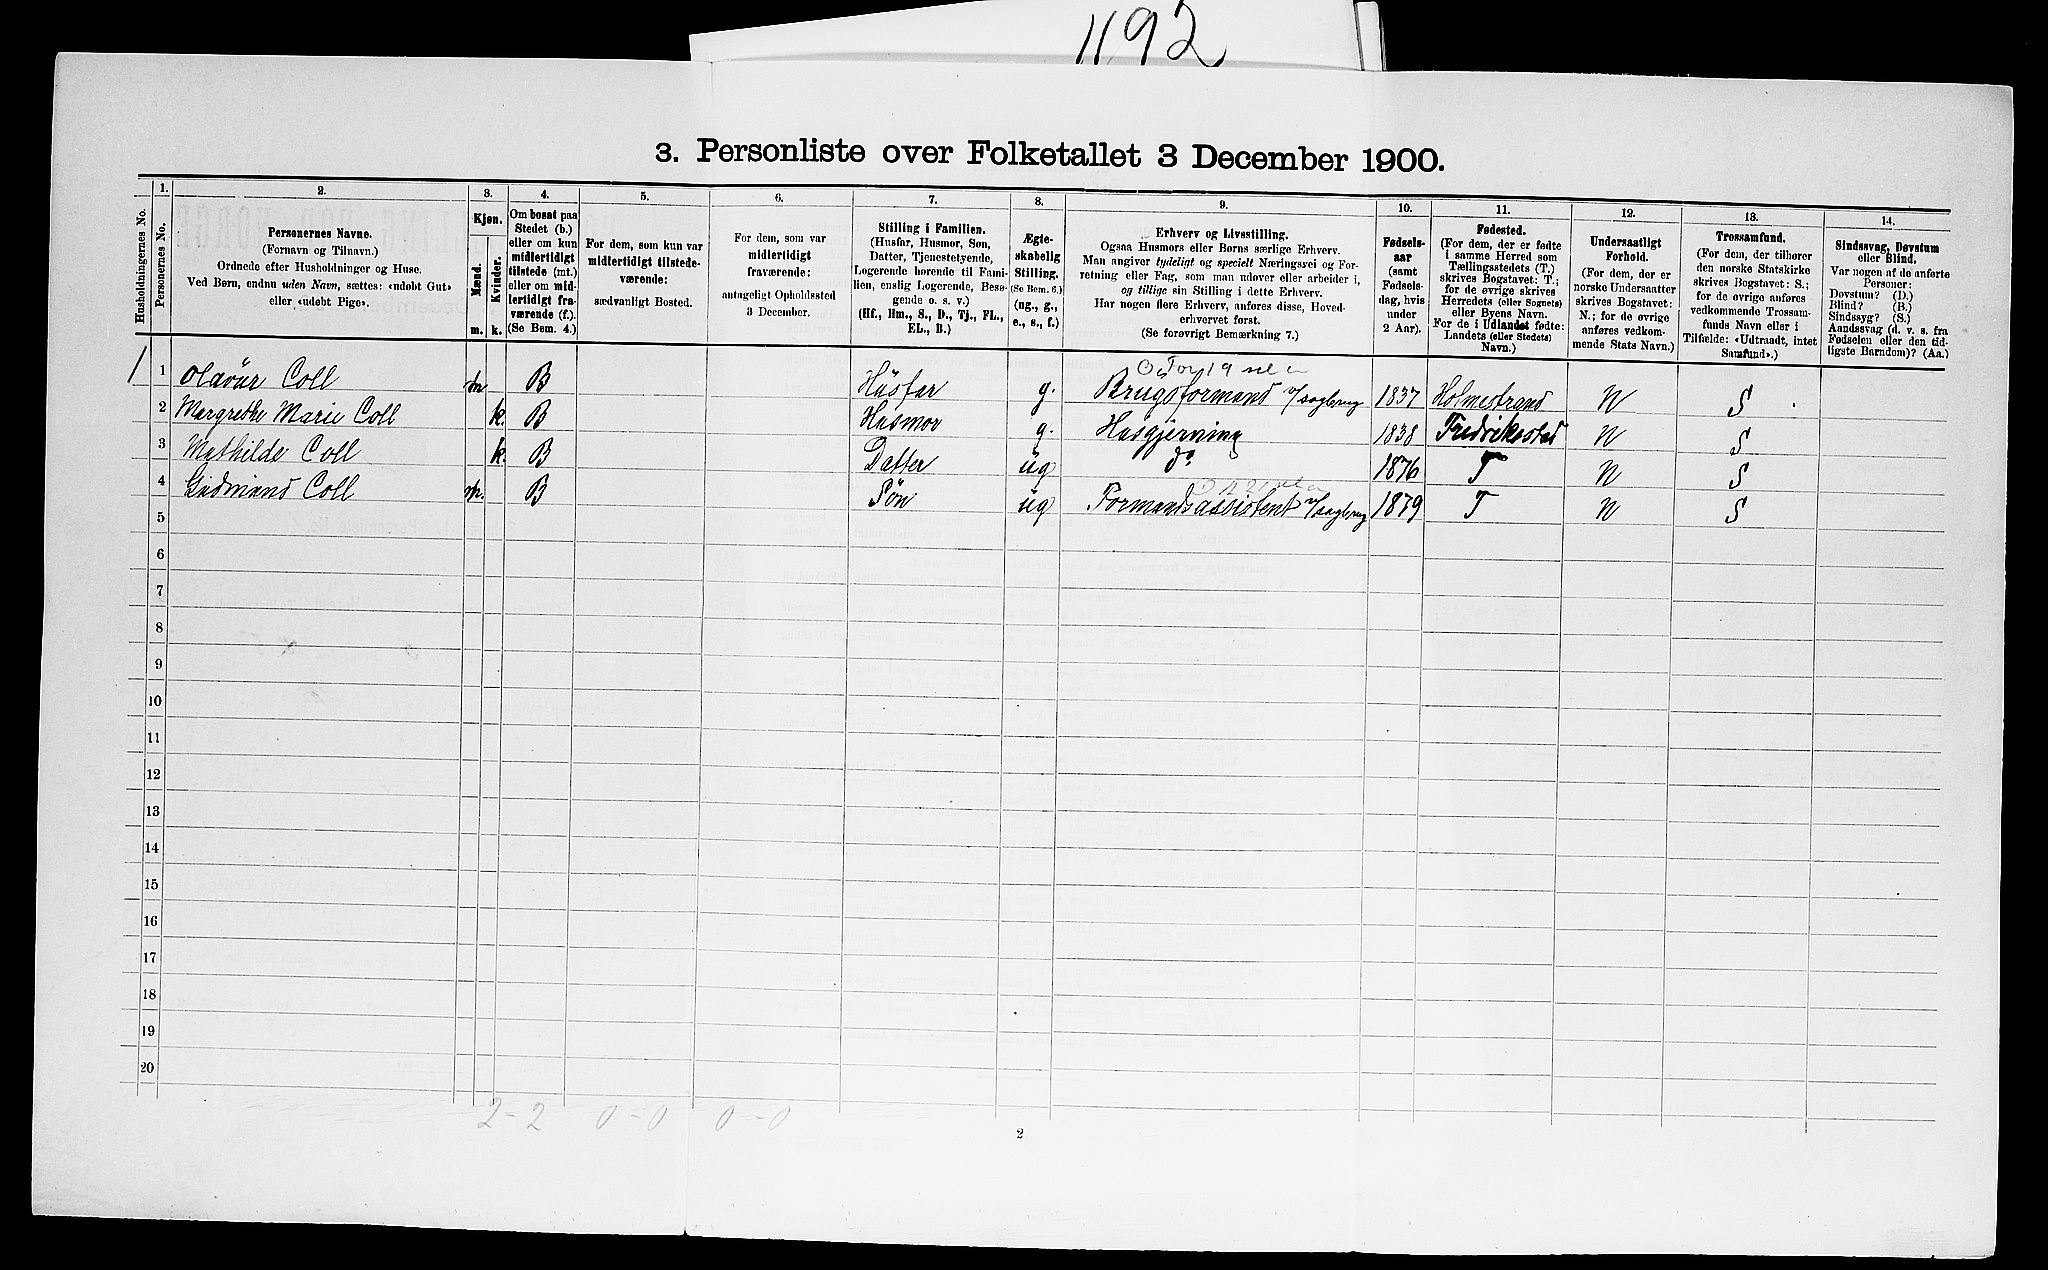 1192
3. Personliste over Folketallet 3 December 1900.
Husholdningernes No.
1.
Personernes No.
2.
Personernes Navne.
(Fornavn og Tilnavn.)
Ordnede efter Husholdninger og Huse.
Ved Børn, endnu uden Navn, sættes: «udøbt Gut»
eller «udøbt Pige».
3.
Kjøn.
Mænd.
m.
Kvinder.
k.
4.
Om bosat paa
Stedet (b.)
eller om kun
midlertidigt
tilstede (mt.)
eller om mid-
lertidigt fra-
værende (f.).
(Se Bem. 4.)
5.
For dem, som kun var
midlertidigt tilstede-
værende:
sædvanligt Bosted.
6.
For dem, som var
midlertidigt
fraværende:
antageligt Opholdssted
3 December.
7.
Stilling i Familien.
(Husfar, Husmor, Søn,
Datter, Tjenestetyende,
Logerende hørende til Fami-
lien, enslig Logerende, Besø-
gende o. s. v.)
(Hf., Hm., S., D., Tj., FL.,
EL., B.)
8.
Ægte-
skabelig
Stilling.
(Se Bem. 6.)
(ug., g.,
e., s., f.)
9.
Erhverv og Livsstilling.
Ogsaa Husmors eller Børns særlige Erhverv.
Man angiver tydeligt og specielt Næringsvei og For-
retning eller Fag, som man udøver eller arbeider i,
og tillige sin Stilling i dette Erhverv.
Har nogen flere Erhverv, anføres disse, Hoved-
erhvervet først.
(Se forøvrigt Bemærkning 7.)
10.
Fødsels-
aar
(samt
Fødsels-
dag, hvis
under
2 Aar).
11.
Fødested.
(For dem, der er fødte
i samme Herred som
Tællingsstedets (T.)
skrives Bogstavet: T.;
for de øvrige skrives
Herredets (eller Sognets)
eller Byens Navn.
For de i Udlandet fødte:
Landets (eller Stedets)
Navn.)
12.
Undersaatligt
Forhold.
(For dem, der er
norske Undersaatter
skrives Bogstavet:
N.; for de øvrige
anføres vedkom-
mende Stats Navn.)
13.
Trossamfund.
(For dem, der tilhører
den norske Statskirke
skrives Bogstavet: S.;
for de øvrige anføres
vedkommende Trossam-
funds Navn eller i
Tilfælde: «Udtraadt, intet
Samfund».)
14.
Sindssvag, Døvstum
eller Blind.
Var nogen af de anførte
Personer:
Døvstum? (D.)
Blind? (B.)
Sindssyg? (S.)
Aandssvag (d. v. s. fra
Fødselen eller den tid-
ligste Barndom)? (Aa.)
1 1 Olavür Coll m B Hüsfar g. Brugsformand v/sagbrug 1837 Holmestrand N S
2 Margrethe Marie Coll k. B Husmor g. Husgjerning 1838 Fredrikestad N S
3 Mathilde Coll k. B Datter üg do 1876 T N S
4 Gudmund Coll m. B Søn üg Formandsassistent v/sagbrug 1879 T N S
5
6
7
8
9
10
11
12
13
14
15
16
17
18
19
20
2-2 0-0 0-0
2